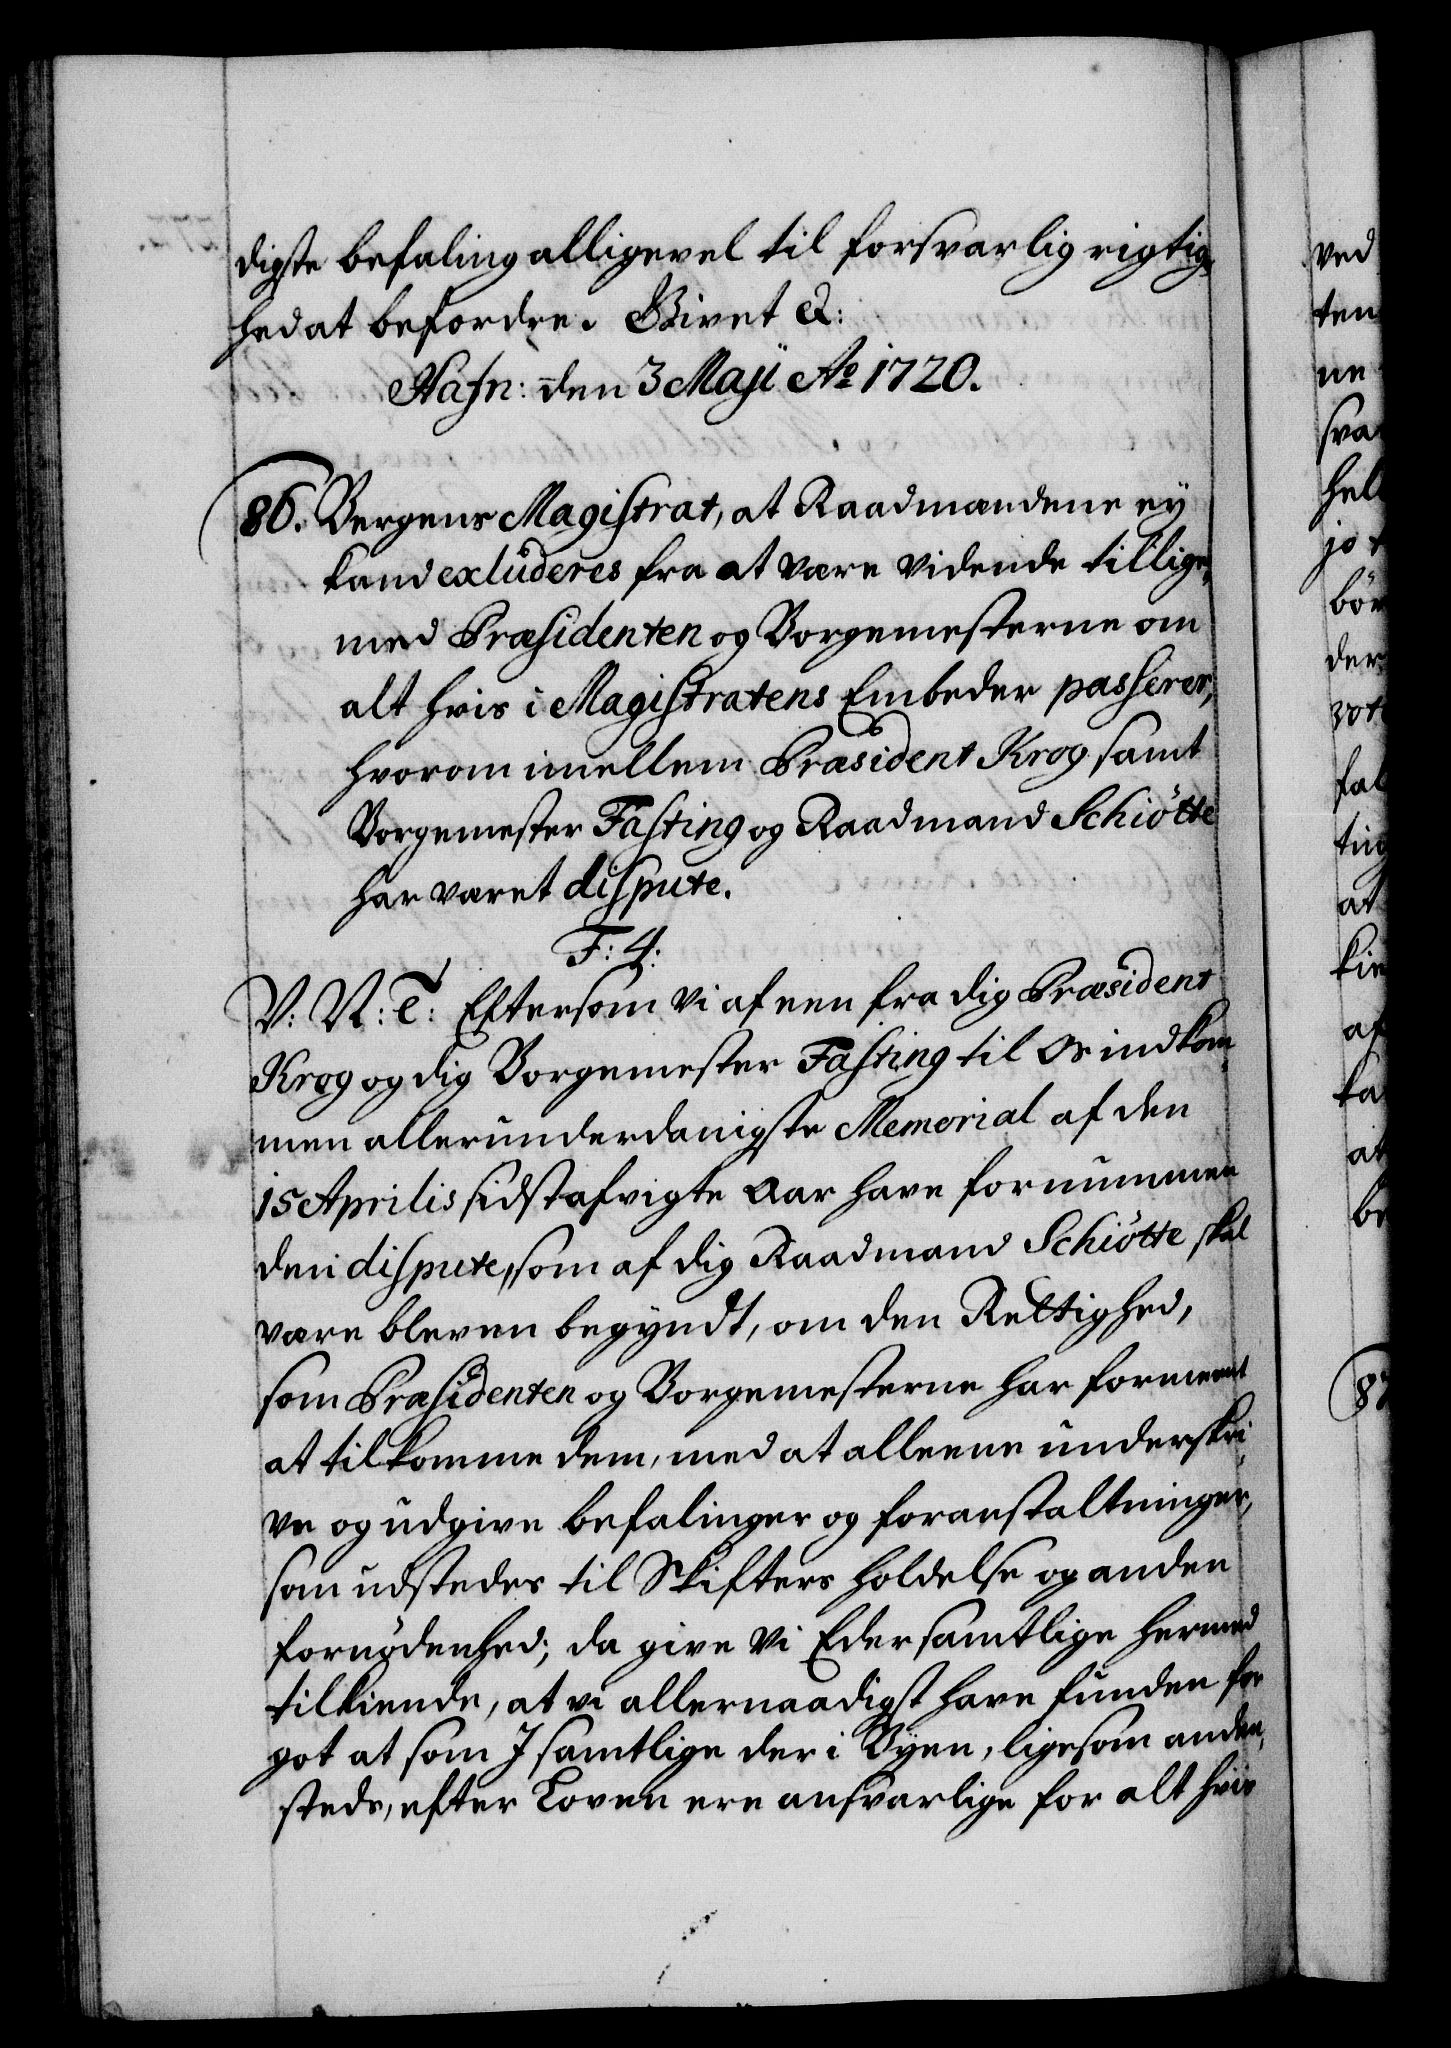 digste befaling alligevel til forsvarlig rigtig-
hed at befordre. Givet &:
Hafn: den 3 Maji Ao 1720.
86. Bergens Magistrat, at Raadmændene ey
kand excluderes fra at være vidende tillige-
med Præsidenten og Borgemesterne om
alt hvis i Magistratens Embeder passerer,
hvorom imellem Præsident Krog samt
Borgemester Fasting og Raadmand Schiötte
har været dispute.
F: 4:
V: N: T: Eftersom Vi af een fra dig Præsident
Krog og dig Borgemester Fasting til Os indkom-
men allerunderdanigste Memorial af den
15 Aprilis sidstafvigte Aar have fornummen
den dispute, som af dig Raadmand Schiötte skal
være bleven begyndt, om den Rettighed,
som Præsidenten og Borgemesterne har formeent
at tilkomme dem, med at alleene underskri-
ve og udgive befalinger og foranstaltninger,
som udstedes til Skifters holdelse og anden
fornødenhed; da give Vi Eder samtlige hermed
tilkiende, at vi allernaadigst have funden for
got at som I samtlige der i Byen, ligesom anden-
steds, efter Loven ere ansvarlige for alt hvis
ved
ten
ne
sva
hel
jo
bör
der
fal
ting
at
kie
af
ka
at
be
87